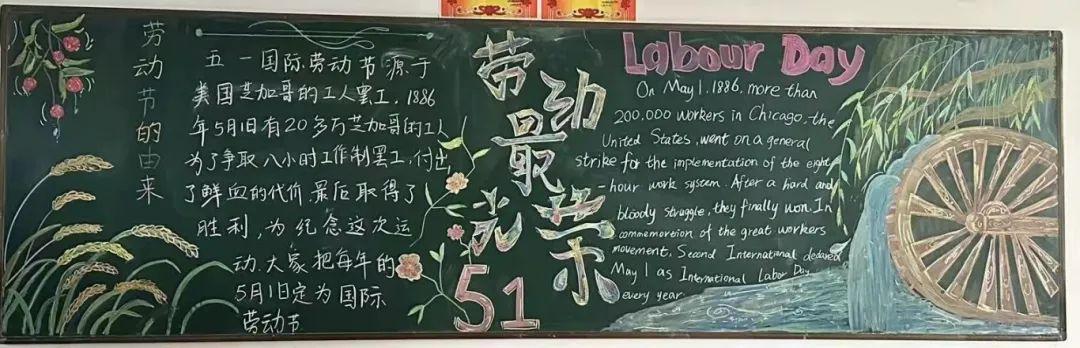 劳动节的由来
五一国际劳动节源于
美国芝加哥的工人罢工，1886
年5月1日有20多万芝加哥的工人
为了争取八小时工作制罢工，付出
了鲜血的代价，最后取得了
胜利，为纪念这次运
动，大家把每年的
5月1日定为国际
劳动节
劳动最光荣
51
Labour Day
On May 1, 1886, more than
200,000 workers in Chicago, the
United States, went on a general
strike for the implementation of the eight
-hour work system. After a hard and
bloody struggle, they finally won. In
commemoration of the great workers
movement, Second International declared
May 1 as International Labor Day
every year